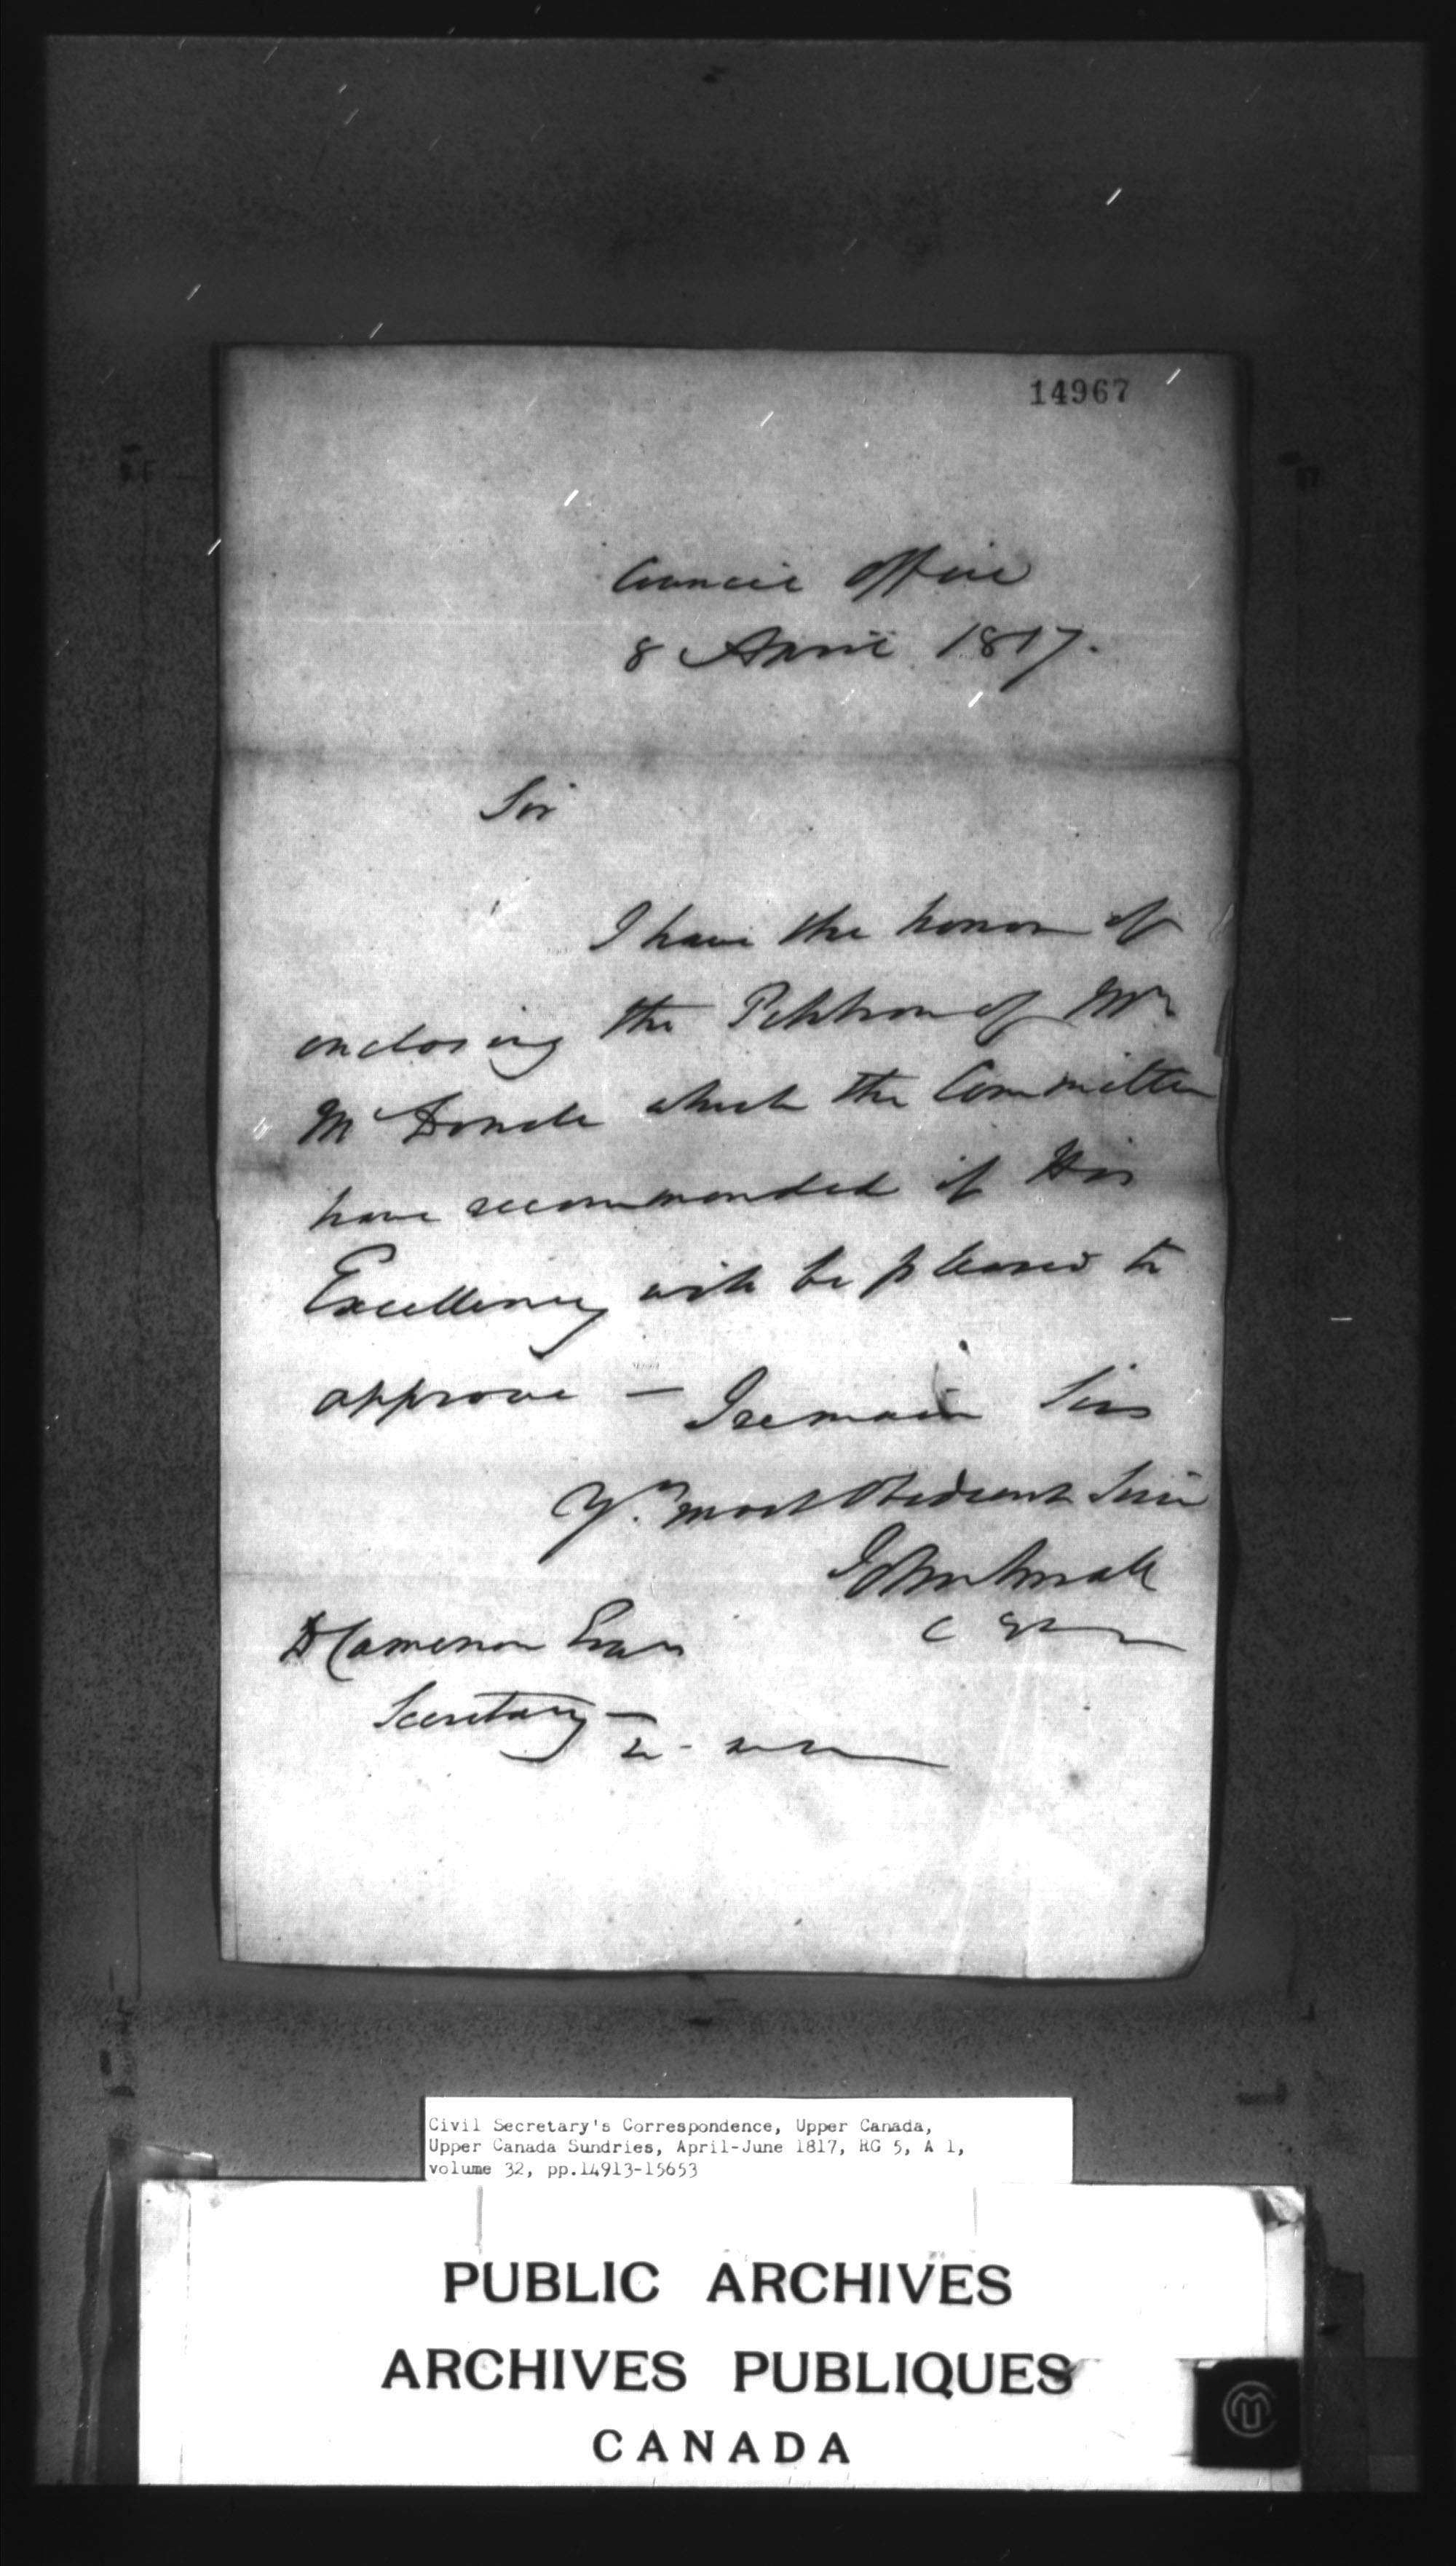 14967
Council Office
8 April 1817.
Sir
I have the honor of
enclosing the Petition of Mr
McDonell which the Committee
have recommended if His
Excellency will be pleased to
approve — I remain Sir
Yr. most Obedient Servt
John Small
C Ex
D Cameron Esqr
Secretary —
Civil Secretary's Correspondence, Upper Canada,
Upper Canada Sundries, April-June 1817, RG 5, A 1,
volume 32, pp.14913-15653
PUBLIC ARCHIVES
ARCHIVES PUBLIQUES
CANADA